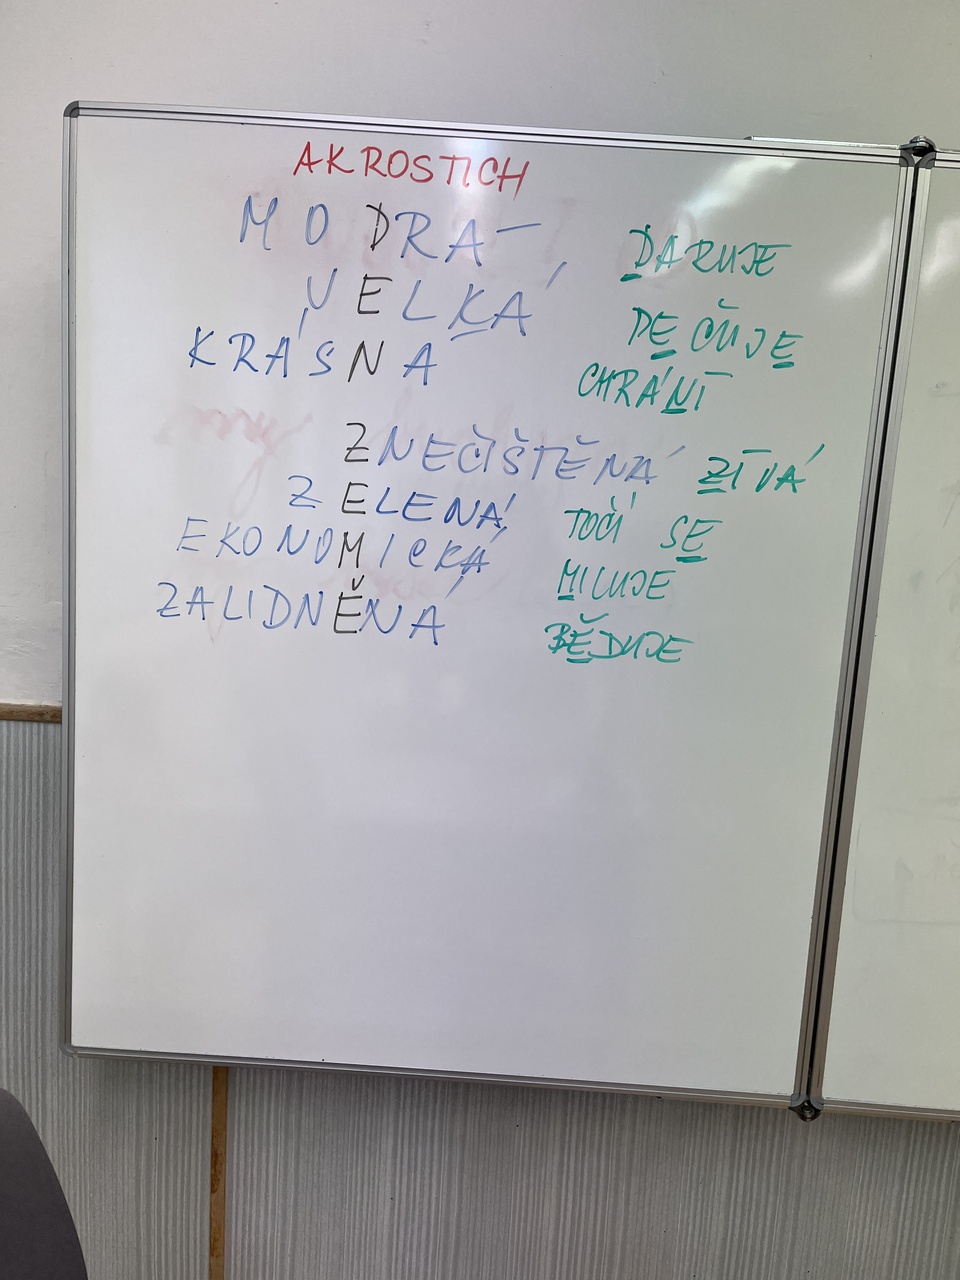 AKROSTICH
MODRÁ DARUJE
VELKÁ PEČUJE
KRÁSNÁ CHRÁNÍ
ZNEČIŠTĚNÁ ZÍVÁ
ZELENÁ TOČÍ SE
EKONOMICKÁ MILUJE
ZALIDNĚNÁ BĚDUJE